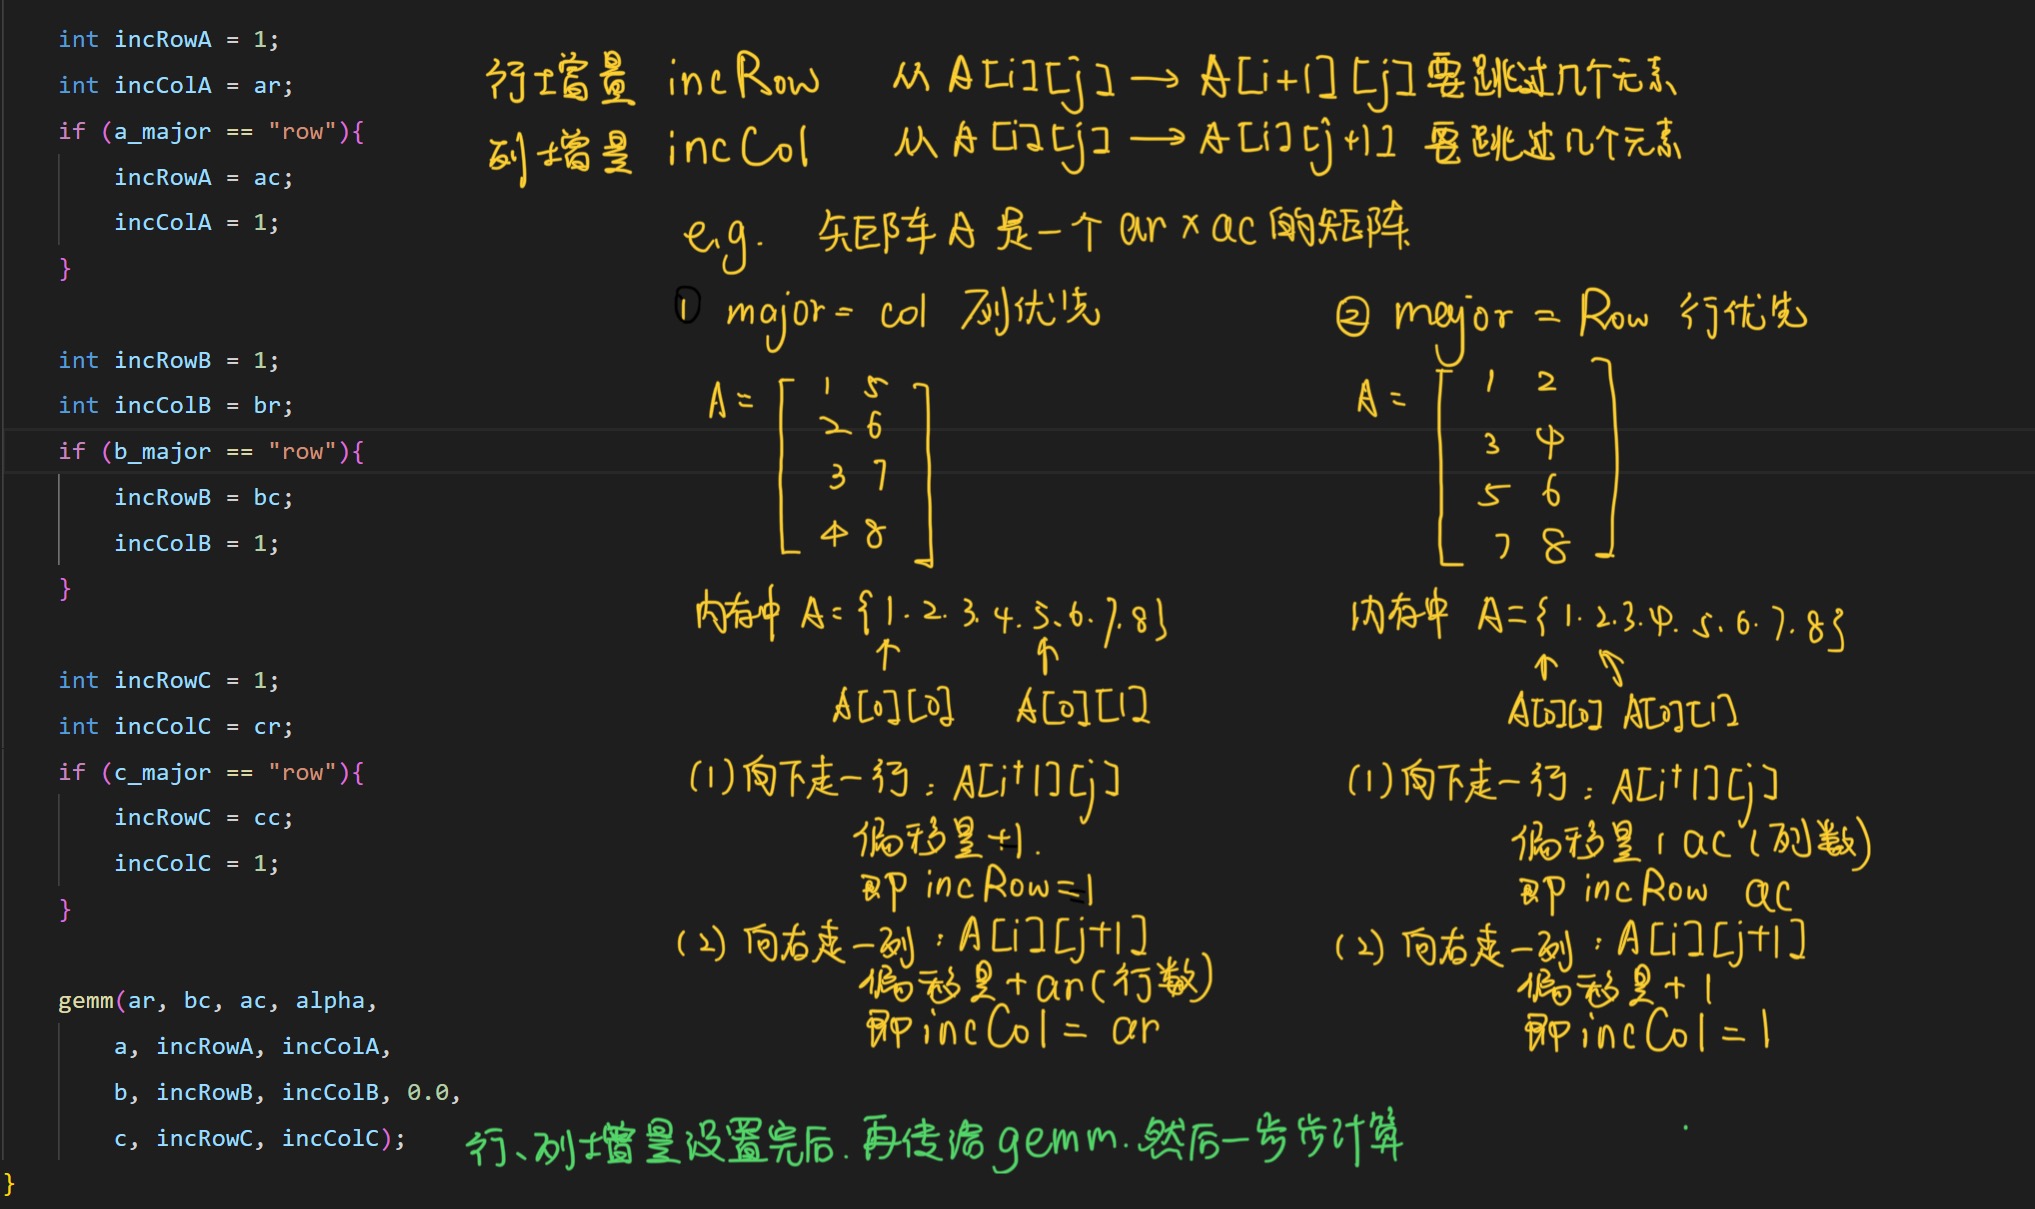 int incRowA = 1;
int incColA = ar;
if (a_major == "row"){
incRowA = ac;
incColA = 1;
}
int incRowB = 1;
int incColB = br;
if (b_major == "row"){
incRowB = bc;
incColB = 1;
}
int incRowC = 1;
int incColC = cr;
if (c_major == "row"){
incRowC = cc;
incColC = 1;
}
gemm(ar, bc, ac, alpha,
a, incRowA, incColA,
b, incRowB, incColB, 0.0,
c, incRowC, incColC);
}
行增量 incRow 从 A[i][j] → A[i+1][j] 要跳过几个元素
列增量 incCol 从 A[i][j] → A[i][j+1] 要跳过几个元素
e.g. 矩阵 A 是一个 ar × ac 的矩阵
① major = col 列优先
A = [ 1 5
2 6
3 7
4 8 ]
内存中 A = { 1. 2. 3. 4. 5. 6. 7. 8 }
↑ ↑
A[0][0] A[0][1]
(1) 向下走一行 : A[i+1][j]
偏移量 +1.
即 incRow = 1
(2) 向右走一列 : A[i][j+1]
偏移量 + ar (行数)
即 incCol = ar
② major = Row 行优先
A = [ 1 2
3 4
5 6
7 8 ]
内存中 A = { 1. 2. 3. 4. 5. 6. 7. 8 }
↑ ↖
A[0][0] A[0][1]
(1) 向下走一行 : A[i+1][j]
偏移量 ac (列数)
即 incRow ac
(2) 向右走一列 : A[i][j+1]
偏移量 + 1
即 incCol = 1
行、列增量设置完后. 再传给 gemm. 然后一步步计算